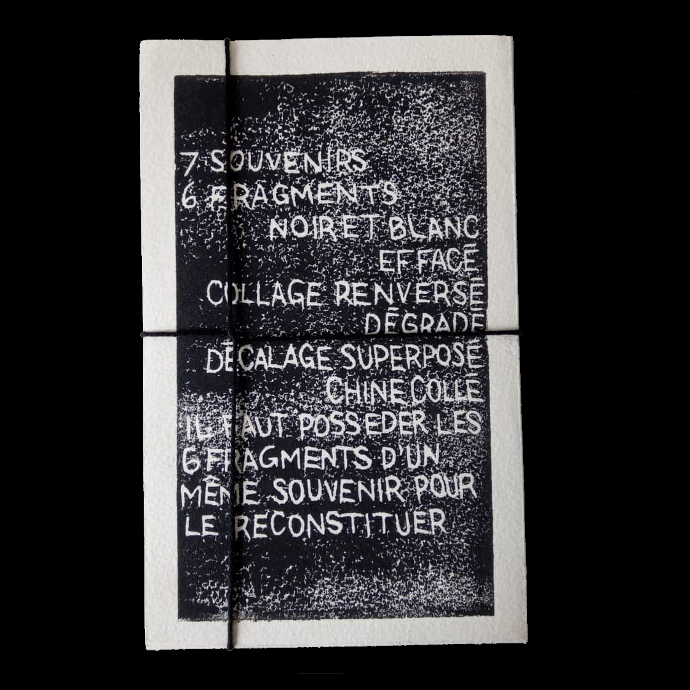 7 SOUVENIRS
6 FRAGMENTS
NOIR ET BLANC
EFFACÉ
COLLAGE RENVERSÉ
DÉGRADÉ
DÉCALAGE SUPERPOSÉ
CHINE COLLÉ
IL FAUT POSSEDER LES
6 FRAGMENTS D'UN
MÊME SOUVENIR POUR
LE RECONSTITUER